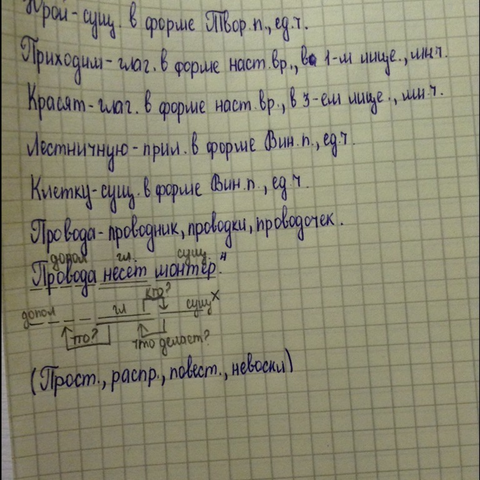 сущ. в форме Твор.п., ед.ч.
Приходим - глаг. в форме наст.вр., в 1-м лице., мн.ч.
Красят - глаг. в форме наст.вр., в 3-ем лице., мн.ч.
Лестничную - прил. в форме Вин.п., ед.ч.
Клетку - сущ. в форме Вин.п., ед.ч.
Провода - проводник, проводки, проводочек.
допол гл. сущ.
Провода несет монтер."4
кто?
допол гл сущ X
что? что делает?
(Прост., распр., повест., невоскл)